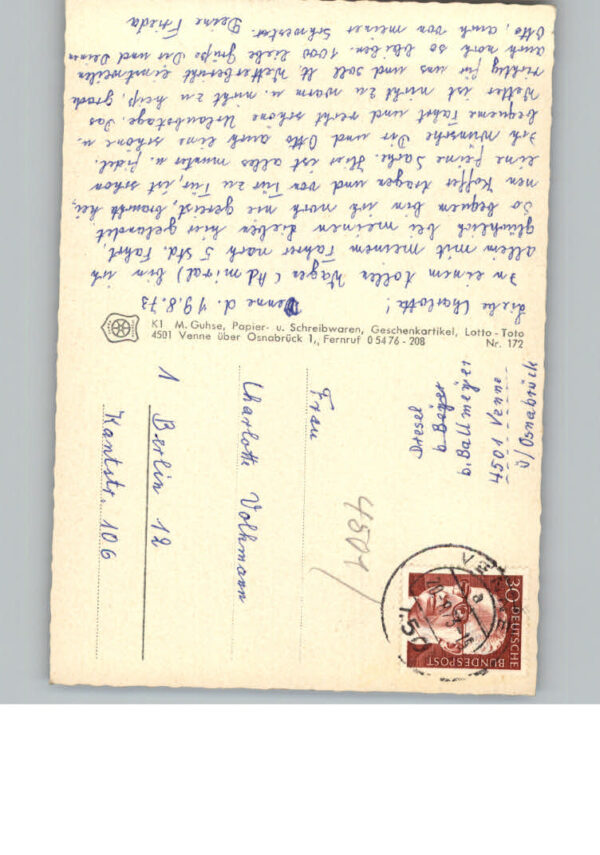 Venne d. 19.8.73
Liebe Charlotte!
In einem tollen Wagen (Admiral) bin ich
allein mit meinem Fahrer nach 5 Std. Fahrt,
glücklich bei meinen Lieben hier gelandet.
So bequem bin ich noch nie gereist, brauchte kei,
nen Koffer tragen und von Tür zu Tür, ist schon
eine feine Sache. Hier ist alles munter u. fidel.
Ich wünsche Dir und Otto auch eine schöne u.
bequeme Fahrt und recht schöne Urlaubstage. Das
Wetter ist nicht zu warm u. nicht zu heiß, grade
richtig für uns und soll lt. Wetterbericht einstweilen
auch noch so bleiben. 1000 liebe Grüße Dir und Deinem
Otto, auch von meiner Schwester. Deine Frieda
K1 M. Guhse, Papier- u. Schreibwaren, Geschenkartikel, Lotto - Toto
4501 Venne über Osnabrück 1,, Fernruf 0 54 76 - 208
Nr. 172
Dresel
b. Beyer
b. Ballmeyer
4501 Venne
ü/Osnabrück
4501
VENNE
4501
a
30
DEUTSCHE
BUNDESPOST
Frau
Charlotte Volkmann
1 Berlin 12
Kantstr. 106